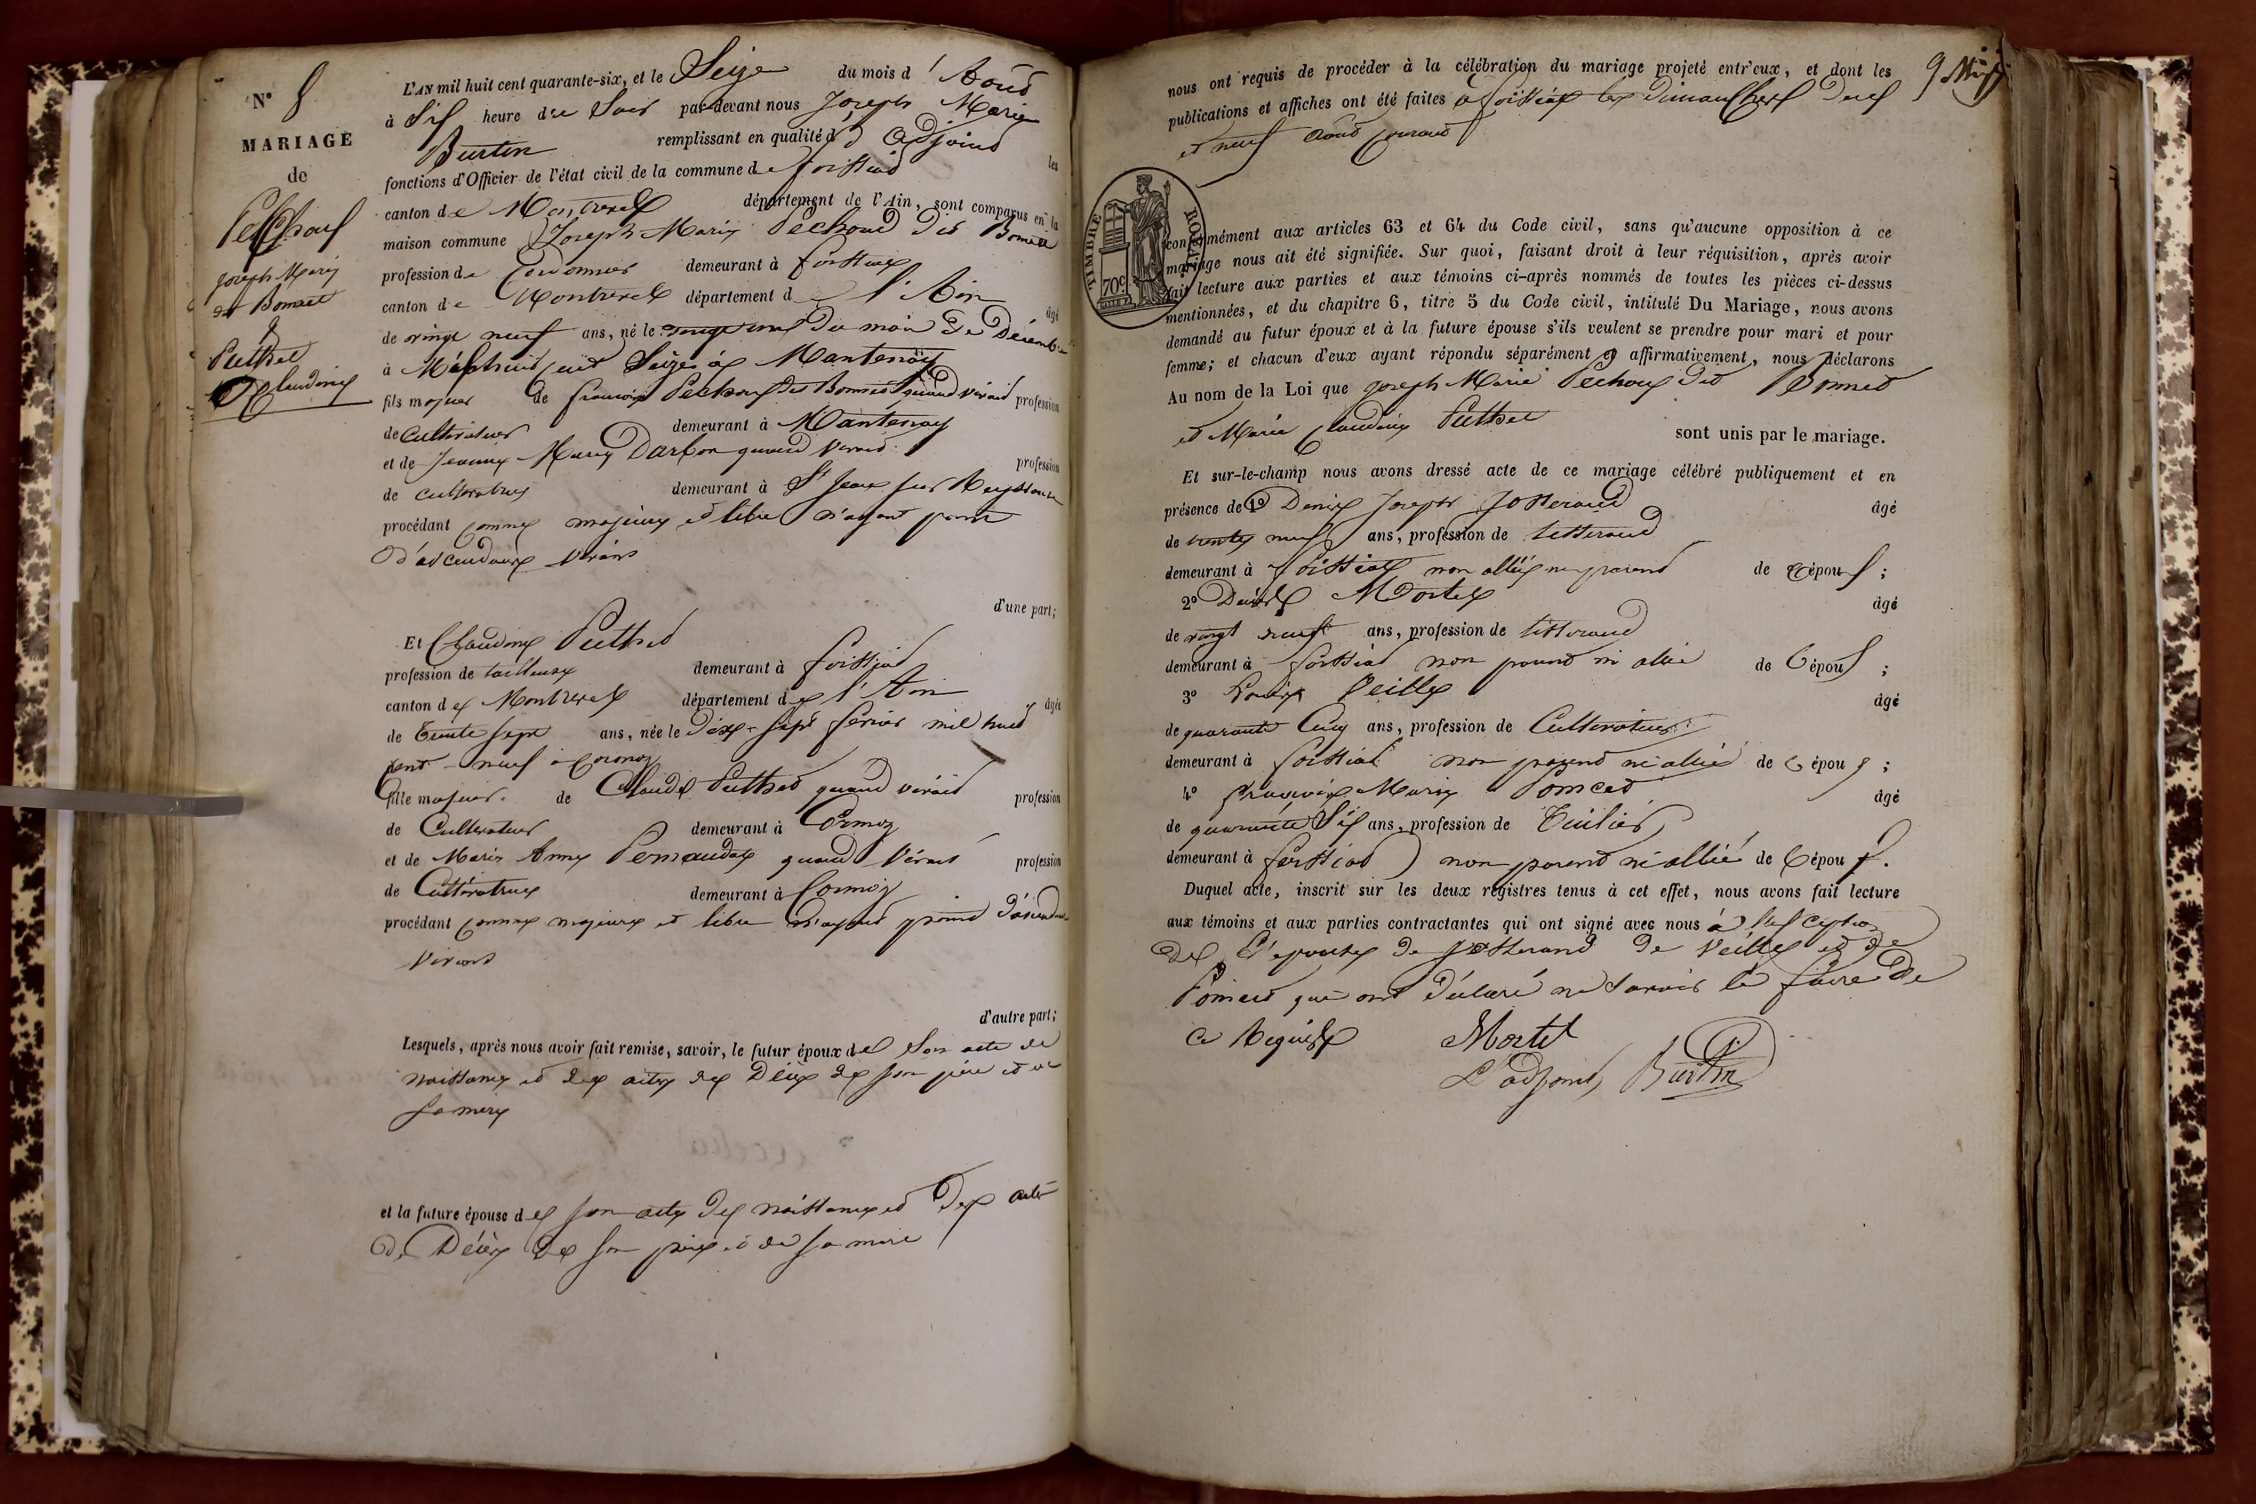 N° 8
MARIAGE
de
Pechoux
joseph Marie
dit Bonnet
&
Puthet
Claudine
L'AN mil huit cent quarante-six, et le Seize du mois d'Août
à Six heure du Soir par-devant nous Joseph Marie
Burtin remplissant en qualité d'adjoint les
fonctions d'Officier de l'état civil de la commune de foissiat
canton de Montrevel département de l'Ain, sont comparus en la
maison commune Joseph Marie Pechoud dit Bonnet
profession de Cordonnier demeurant à foissiat
canton de Montrevel département de l'Ain âgé
de vingt neuf ans, né le du mois de Décembre
à Mil huit cent Seize à Mantenay
fils majeur de françois Pechoux dit Bonnet quand vivait profession
de cultivateur demeurant à Mantenay
et de Jeanne Marie Darbon quand vivait profession
de cultivatrice demeurant à St Jean sur Reyssouze
procédant comme majeur et libre n'ayant point
d'ascendants vivans
d'une part;
Et Claudine Puthet
profession de tailleuse demeurant à foissiat
canton de Montrevel département de l'Ain âgée
de Trente sept ans, née le Dix-sept février mil huit
cent neuf à Cormoz
fille majeure de Claude Puthet quand vivait profession
de Cultivateur demeurant à Cormoz
et de Marie Anne quand vivait profession
de Cultivatrice demeurant à Cormoz
procédant comme majeure et libre n'ayant point d'ascendans
vivans
d'autre part;
Lesquels, après nous avoir fait remise, savoir, le futur époux de Son acte de
naissance et des actes de Décès de son père et de
sa mère
et la future épouse de son acte de naissance et des actes
de Décès de son père et de sa mère
nous ont requis de procéder à la célébration du mariage projeté entr'eux, et dont les
publications et affiches ont été faites à foissiat les dimanches deux
et neuf août courant
9
TIMBRE ROYAL
70c
conformément aux articles 63 et 64 du Code civil, sans qu'aucune opposition à ce
mariage nous ait été signifiée. Sur quoi, faisant droit à leur réquisition, après avoir
fait lecture aux parties et aux témoins ci-après nommés de toutes les pièces ci-dessus
mentionnées, et du chapitre 6, titre 5 du Code civil, intitulé Du Mariage, nous avons
demandé au futur époux et à la future épouse s'ils veulent se prendre pour mari et pour
femme; et chacun d'eux ayant répondu séparément et affirmativement, nous déclarons
Au nom de la Loi que joseph Marie Pechoux dit Bonnet
et Marie Claudine Puthet sont unis par le mariage.
Et sur-le-champ nous avons dressé acte de ce mariage célébré publiquement et en
présence de 1° Denis Joseph Josserand âgé
de trente neuf ans, profession de tisserand
demeurant à foissiat non allié ni parent de l'époux;
2° Mortel âgé
de vingt neuf ans, profession de tisserand
demeurant à foissiat non parent ni allié de l'époux;
3° Louis Veille âgé
de quarante Cinq ans, profession de Cultivateur
demeurant à foissiat non parent ni allié de l'époux;
4° françois Marie Poncet âgé
de quarante Six ans, profession de Tuilier
demeurant à foissiat non parent ni allié de l'époux.
Duquel acte, inscrit sur les deux registres tenus à cet effet, nous avons fait lecture
aux témoins et aux parties contractantes qui ont signé avec nous à l'exception
de l'épouse de Josserand de Veille et de
Poncet qui ont déclaré ne savoir le faire de
ce Requis
Mortel
L'adjoint, Burtin